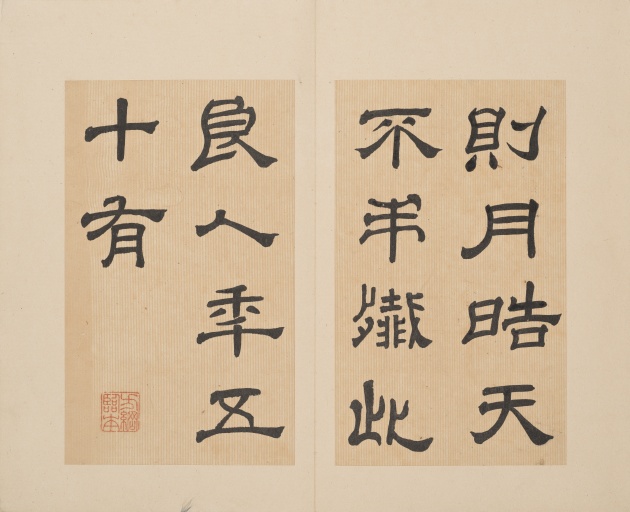 則月晧天
不弔殲此
良人年五
十有